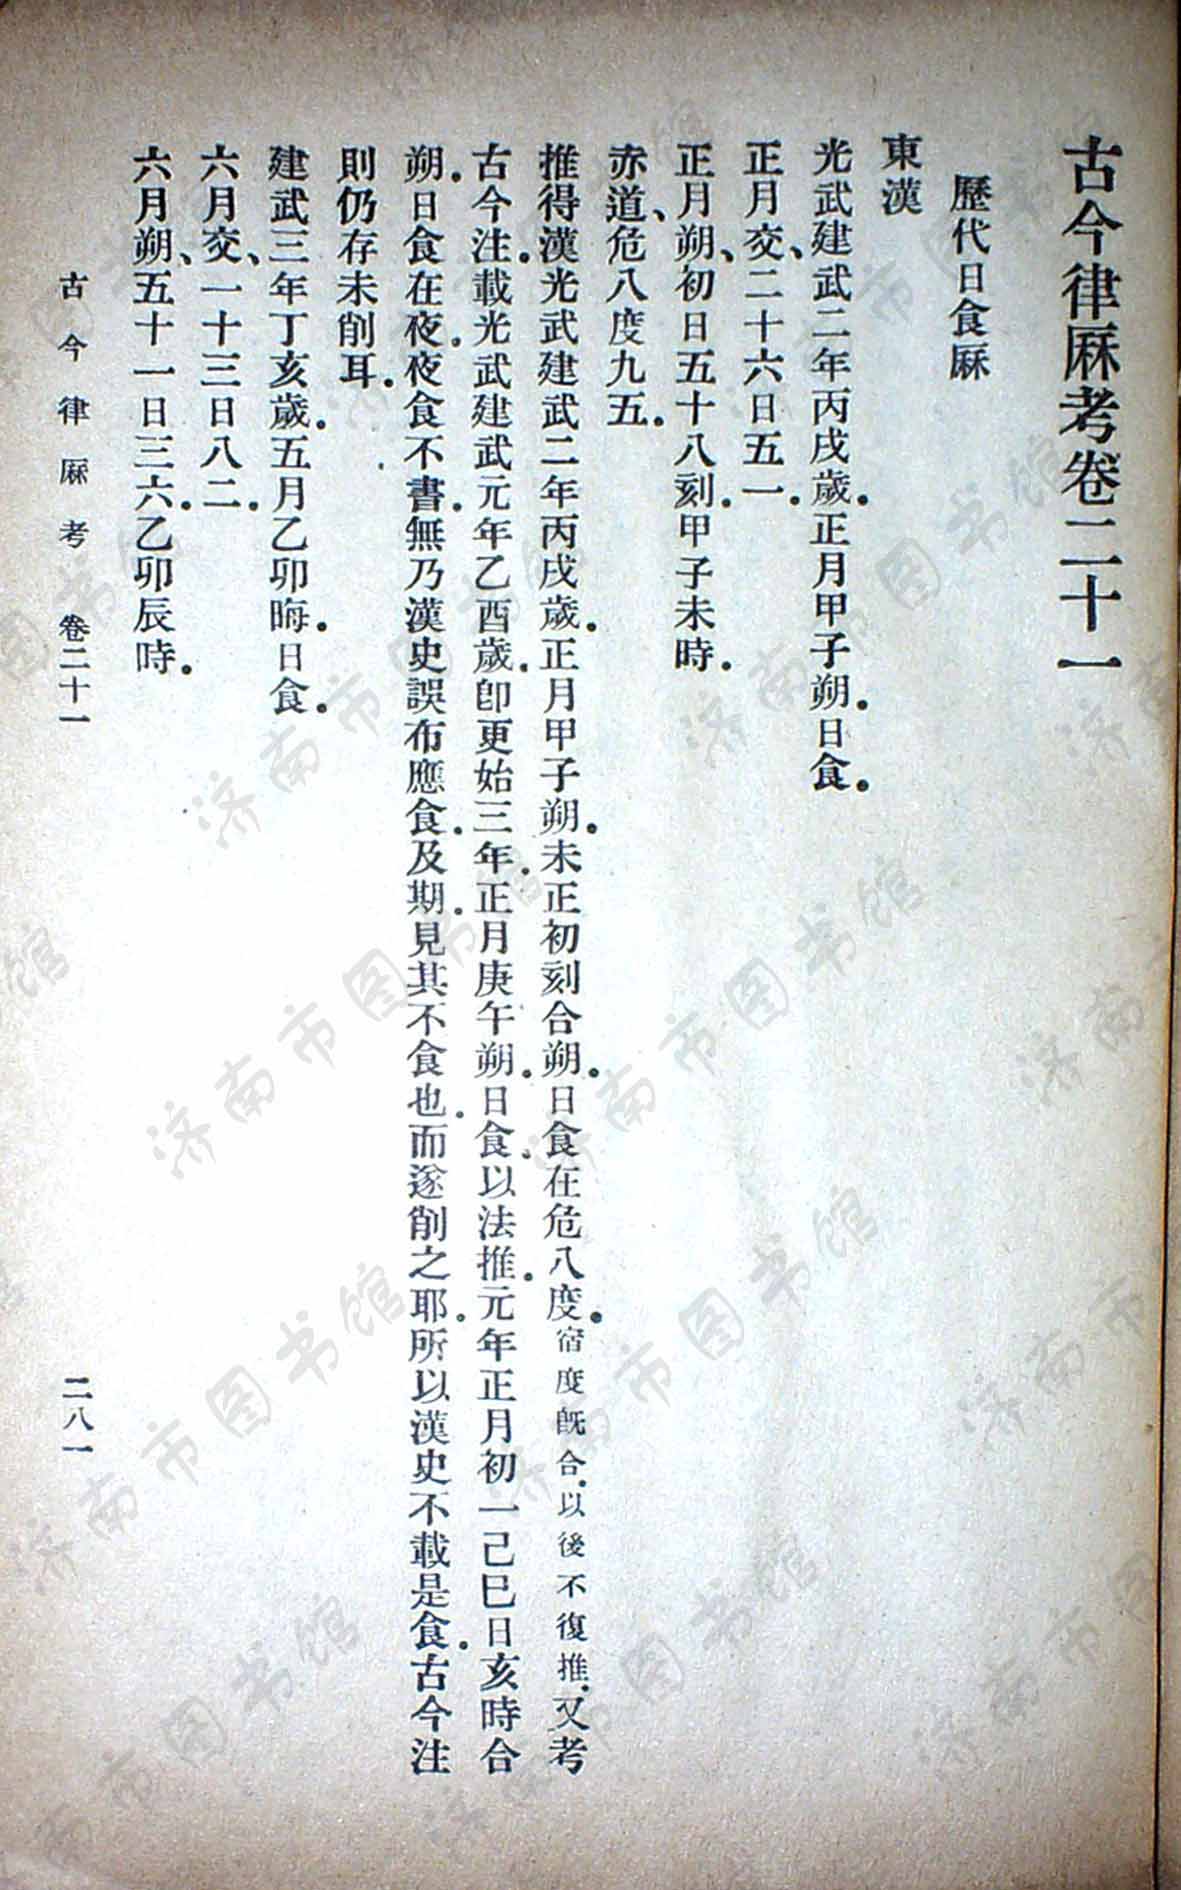 古今律厤考卷二十一
歷代日食厤
東漢
光武建武二年丙戌歲。正月甲子朔。日食。
正月交、二十六日五一。
正月朔、初日五十八刻。甲子未時。
赤道、危八度九五。
推得漢光武建武二年丙戌歲。正月甲子朔。未正初刻合朔。日食在危八度。宿度既合。以後不復推。又考
古今注。載光武建武元年乙酉歲。卽更始三年。正月庚午朔。日食。以法推。元年正月初一己巳日亥時合
朔。日食在夜。夜食不書。無乃漢史誤布應食。及期。見其不食也。而遂削之耶。所以漢史不載是食。古今注
則仍存未削耳。
建武三年丁亥歲。五月乙卯晦。日食。
六月交、一十三日八二。
六月朔、五十一日三六。乙卯辰時。
古今律厤考 卷二十一 二八一
济南市图书馆